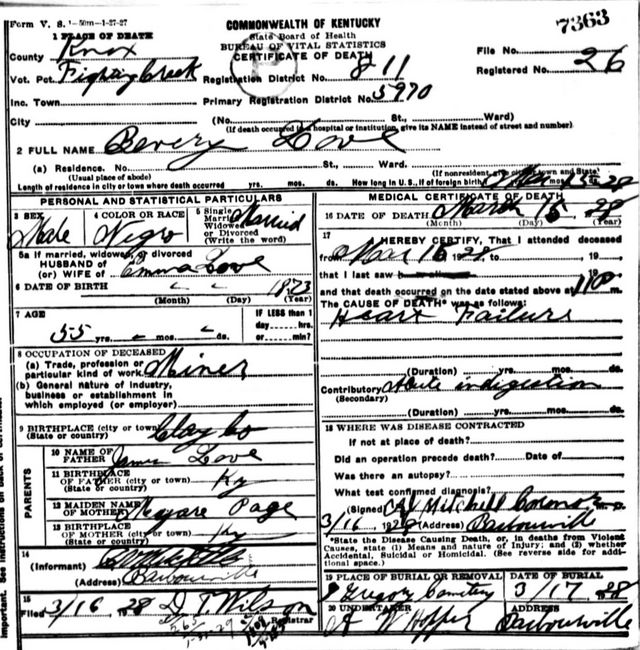 Form V. S. 1-50m-1-27-27
COMMONWEALTH OF KENTUCKY
7363
1 PLACE OF DEATH
State Board of Health
BUREAU OF VITAL STATISTICS
CERTIFICATE OF DEATH
File No.
County Knox
Vot. Pct. Fighting Creek
Registration District No. 811
Registered No. 26
Inc. Town
Primary Registration District No. 5970
City (No. St., Ward)
(If death occurred in a hospital or institution, give its NAME instead of street and number)
2 FULL NAME Bevery Love
(a) Residence. No. St., Ward.
(Usual place of abode) (If nonresident, give city or town and State)
Length of residence in city or town where death occurred yrs. mos. ds. How long in U. S., if of foreign birth? 15 28
PERSONAL AND STATISTICAL PARTICULARS
3 SEX Male
4 COLOR OR RACE Negro
5 Single Married Widowed or Divorced (Write the word) Married
5a If married, widowed, or divorced
HUSBAND of
(or) WIFE of Emma Love
6 DATE OF BIRTH 1873
(Month) (Day) (Year)
7 AGE
55 yrs. mos. ds.
IF LESS than 1
day hrs.
or min?
8 OCCUPATION OF DECEASED
(a) Trade, profession or
particular kind of work Miner
(b) General nature of industry,
business or establishment in
which employed (or employer)
9 BIRTHPLACE (city or town)
(State or country) Clay Co
PARENTS
10 NAME OF
FATHER James Love
11 BIRTHPLACE
OF FATHER (city or town)
(State or country) Ky
12 MAIDEN NAME
OF MOTHER Page
13 BIRTHPLACE
OF MOTHER (city or town)
(State or country) Ky
14
(Informant)
(Address) Barbourville
15
Filed 3/16 28 D T Wilson
Registrar
MEDICAL CERTIFICATE OF DEATH
16 DATE OF DEATH March 15 28
(Month) (Day) (Year)
17
I HEREBY CERTIFY, That I attended deceased
from Mar 16 1928, to 19
that I last saw h 19
and that death occurred on the date stated above at 1 00
The CAUSE OF DEATH* was as follows:
Heart Failure
(Duration) yrs. mos. ds.
Contributory Acute indigestion
(Secondary)
(Duration) yrs. mos. ds.
18 WHERE WAS DISEASE CONTRACTED
If not at place of death?
Did an operation precede death? Date of
Was there an autopsy?
What test confirmed diagnosis?
(Signed) Mitchell Coroner
3/16 1928 (Address) Barbourville
*State the Disease Causing Death, or, in deaths from Violent
Causes, state (1) Means and nature of Injury; and (2) whether
Accidental, Suicidal or Homicidal. (See reverse side for addi-
tional space.)
19 PLACE OF BURIAL OR REMOVAL
Gregory Cemetery
DATE OF BURIAL
3/17 28
20 UNDERTAKER
A W Hopper
ADDRESS
Barbourville